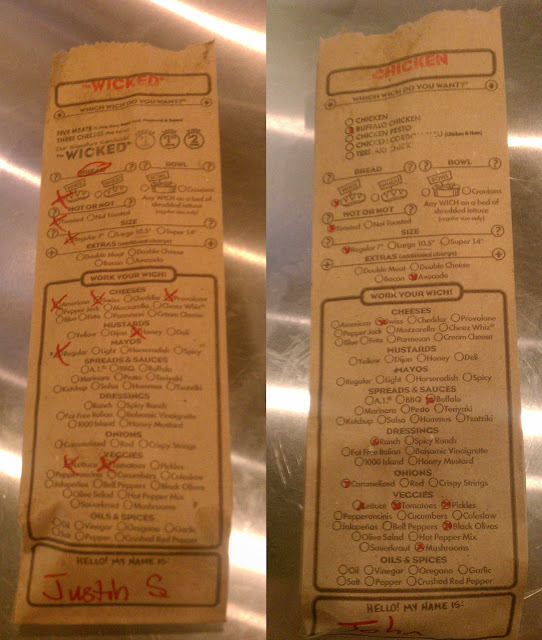 THE WICKED
WHICH WICH DO YOU WANT?
FIVE MEATS
THREE CHEESES
THE WICKED
BREAD BOWL
Croutons
Any WICH on a bed of
shredded lettuce
(regular size only)
HOT OR NOT
Toasted Not Toasted
SIZE
Regular 7" Large 10.5" Super 14"
EXTRAS (additional charge)
Double Meat Double Cheese
Bacon Avocado
WORK YOUR WICH!
CHEESES
American Swiss Cheddar Provolone
Pepper Jack Mozzarella Cheez Whiz
Blue Feta Parmesan Cream Cheese
MUSTARDS
Yellow Dijon Honey Deli
MAYOS
Regular Light Horseradish Spicy
SPREADS & SAUCES
A.1. BBQ Buffalo
Marinara Pesto Teriyaki
Ketchup Salsa Hummus Tzatziki
DRESSINGS
Ranch Spicy Ranch
Fat Free Italian Balsamic Vinaigrette
1000 Island Honey Mustard
ONIONS
Caramelized Red Crispy Strings
VEGGIES
Lettuce Tomatoes Pickles
Pepperoncinis Cucumbers Coleslaw
Jalapeños Bell Peppers Black Olives
Olive Salad Hot Pepper Mix
Sauerkraut Mushrooms
OILS & SPICES
Oil Vinegar Oregano Garlic
Salt Pepper Crushed Red Pepper
HELLO! MY NAME IS:
Justin S
CHICKEN
WHICH WICH DO YOU WANT?
CHICKEN
BUFFALO CHICKEN
CHICKEN PESTO
CHICKEN CORDON (Chicken & Ham)
BREAD BOWL
Croutons
Any WICH on a bed of
shredded lettuce
(regular size only)
HOT OR NOT
Toasted Not Toasted
SIZE
Regular 7" Large 10.5" Super 14"
EXTRAS (additional charge)
Double Meat Double Cheese
Bacon Avocado
WORK YOUR WICH!
CHEESES
American Swiss Cheddar Provolone
Pepper Jack Mozzarella Cheez Whiz®
Blue Feta Parmesan Cream Cheese
MUSTARDS
Yellow Dijon Honey Deli
MAYOS
Regular Light Horseradish Spicy
SPREADS & SAUCES
A.1.® BBQ Buffalo
Marinara Pesto Teriyaki
Ketchup Salsa Hummus Tzatziki
DRESSINGS
Ranch Spicy Ranch
Fat Free Italian Balsamic Vinaigrette
1000 Island Honey Mustard
ONIONS
Caramelized Red Crispy Strings
VEGGIES
Lettuce Tomatoes Pickles
Pepperoncinis Cucumbers Coleslaw
Jalapeños Bell Peppers Black Olives
Olive Salad Hot Pepper Mix
Sauerkraut Mushrooms
OILS & SPICES
Oil Vinegar Oregano Garlic
Salt Pepper Crushed Red Pepper
HELLO! MY NAME IS: